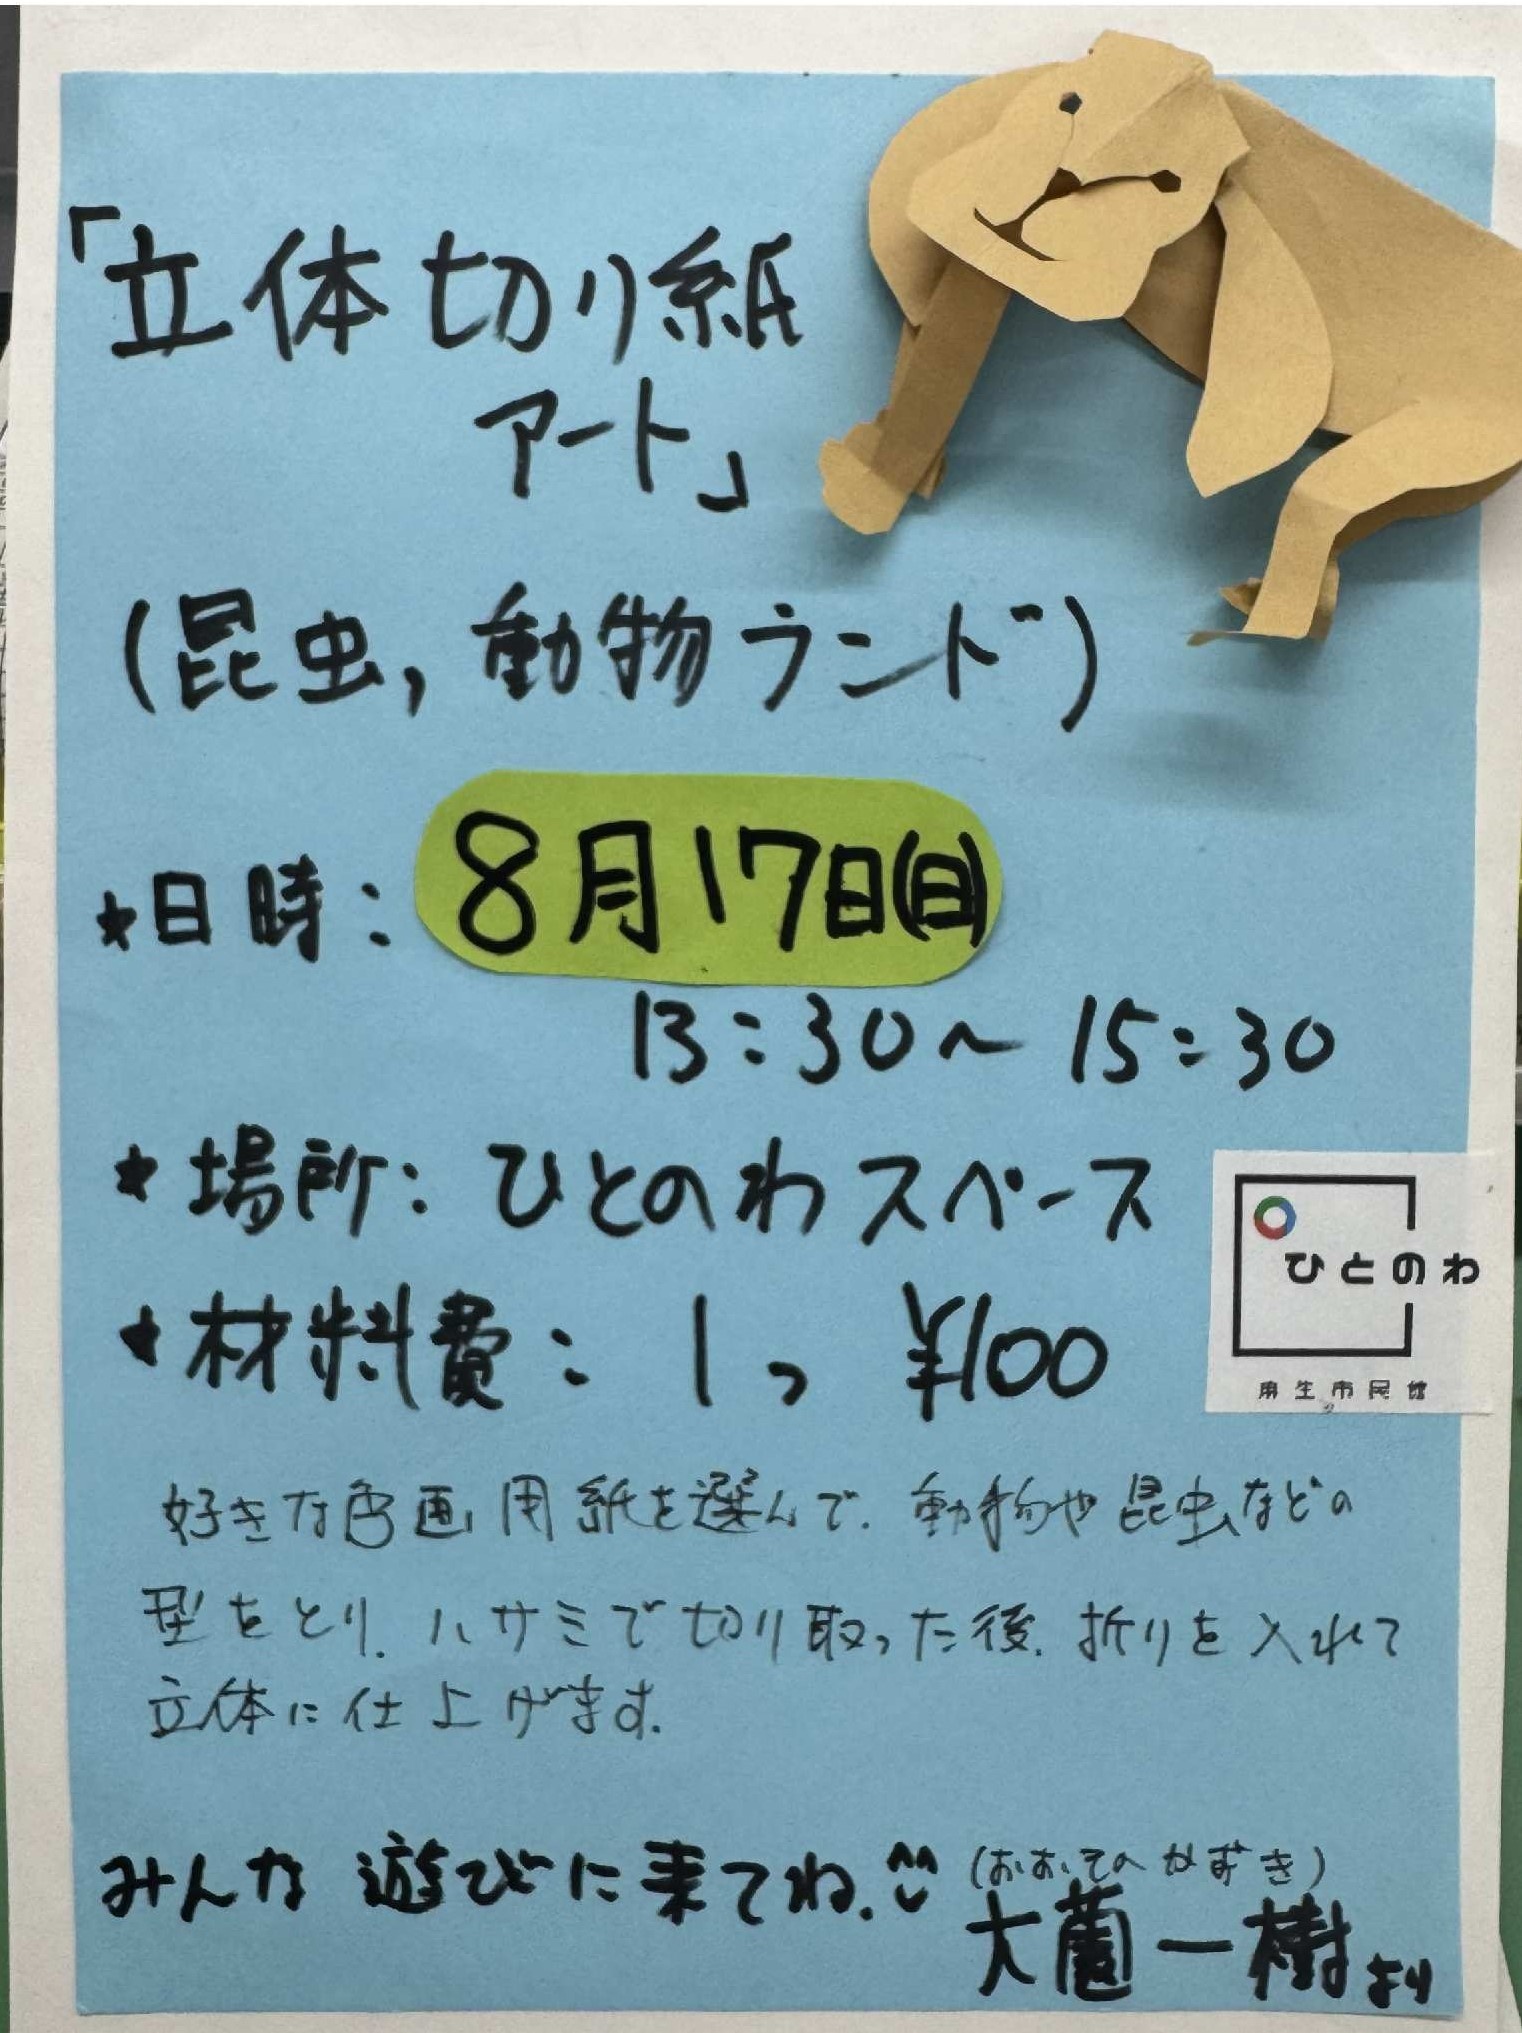 「立体切り紙
アート」
(昆虫,動物ランド)
★日時:8月17日(日)
13:30〜15:30
★場所:ひとのわスペース
★材料費:1つ ¥100
ひとのわ
麻生市民館
好きな色画用紙を選んで、動物や昆虫などの
型をとり、ハサミで切り取った後、折りを入れて
立体に仕上げます。
みんな遊びに来てね。
(おおぞのかずき)
大薗一樹より